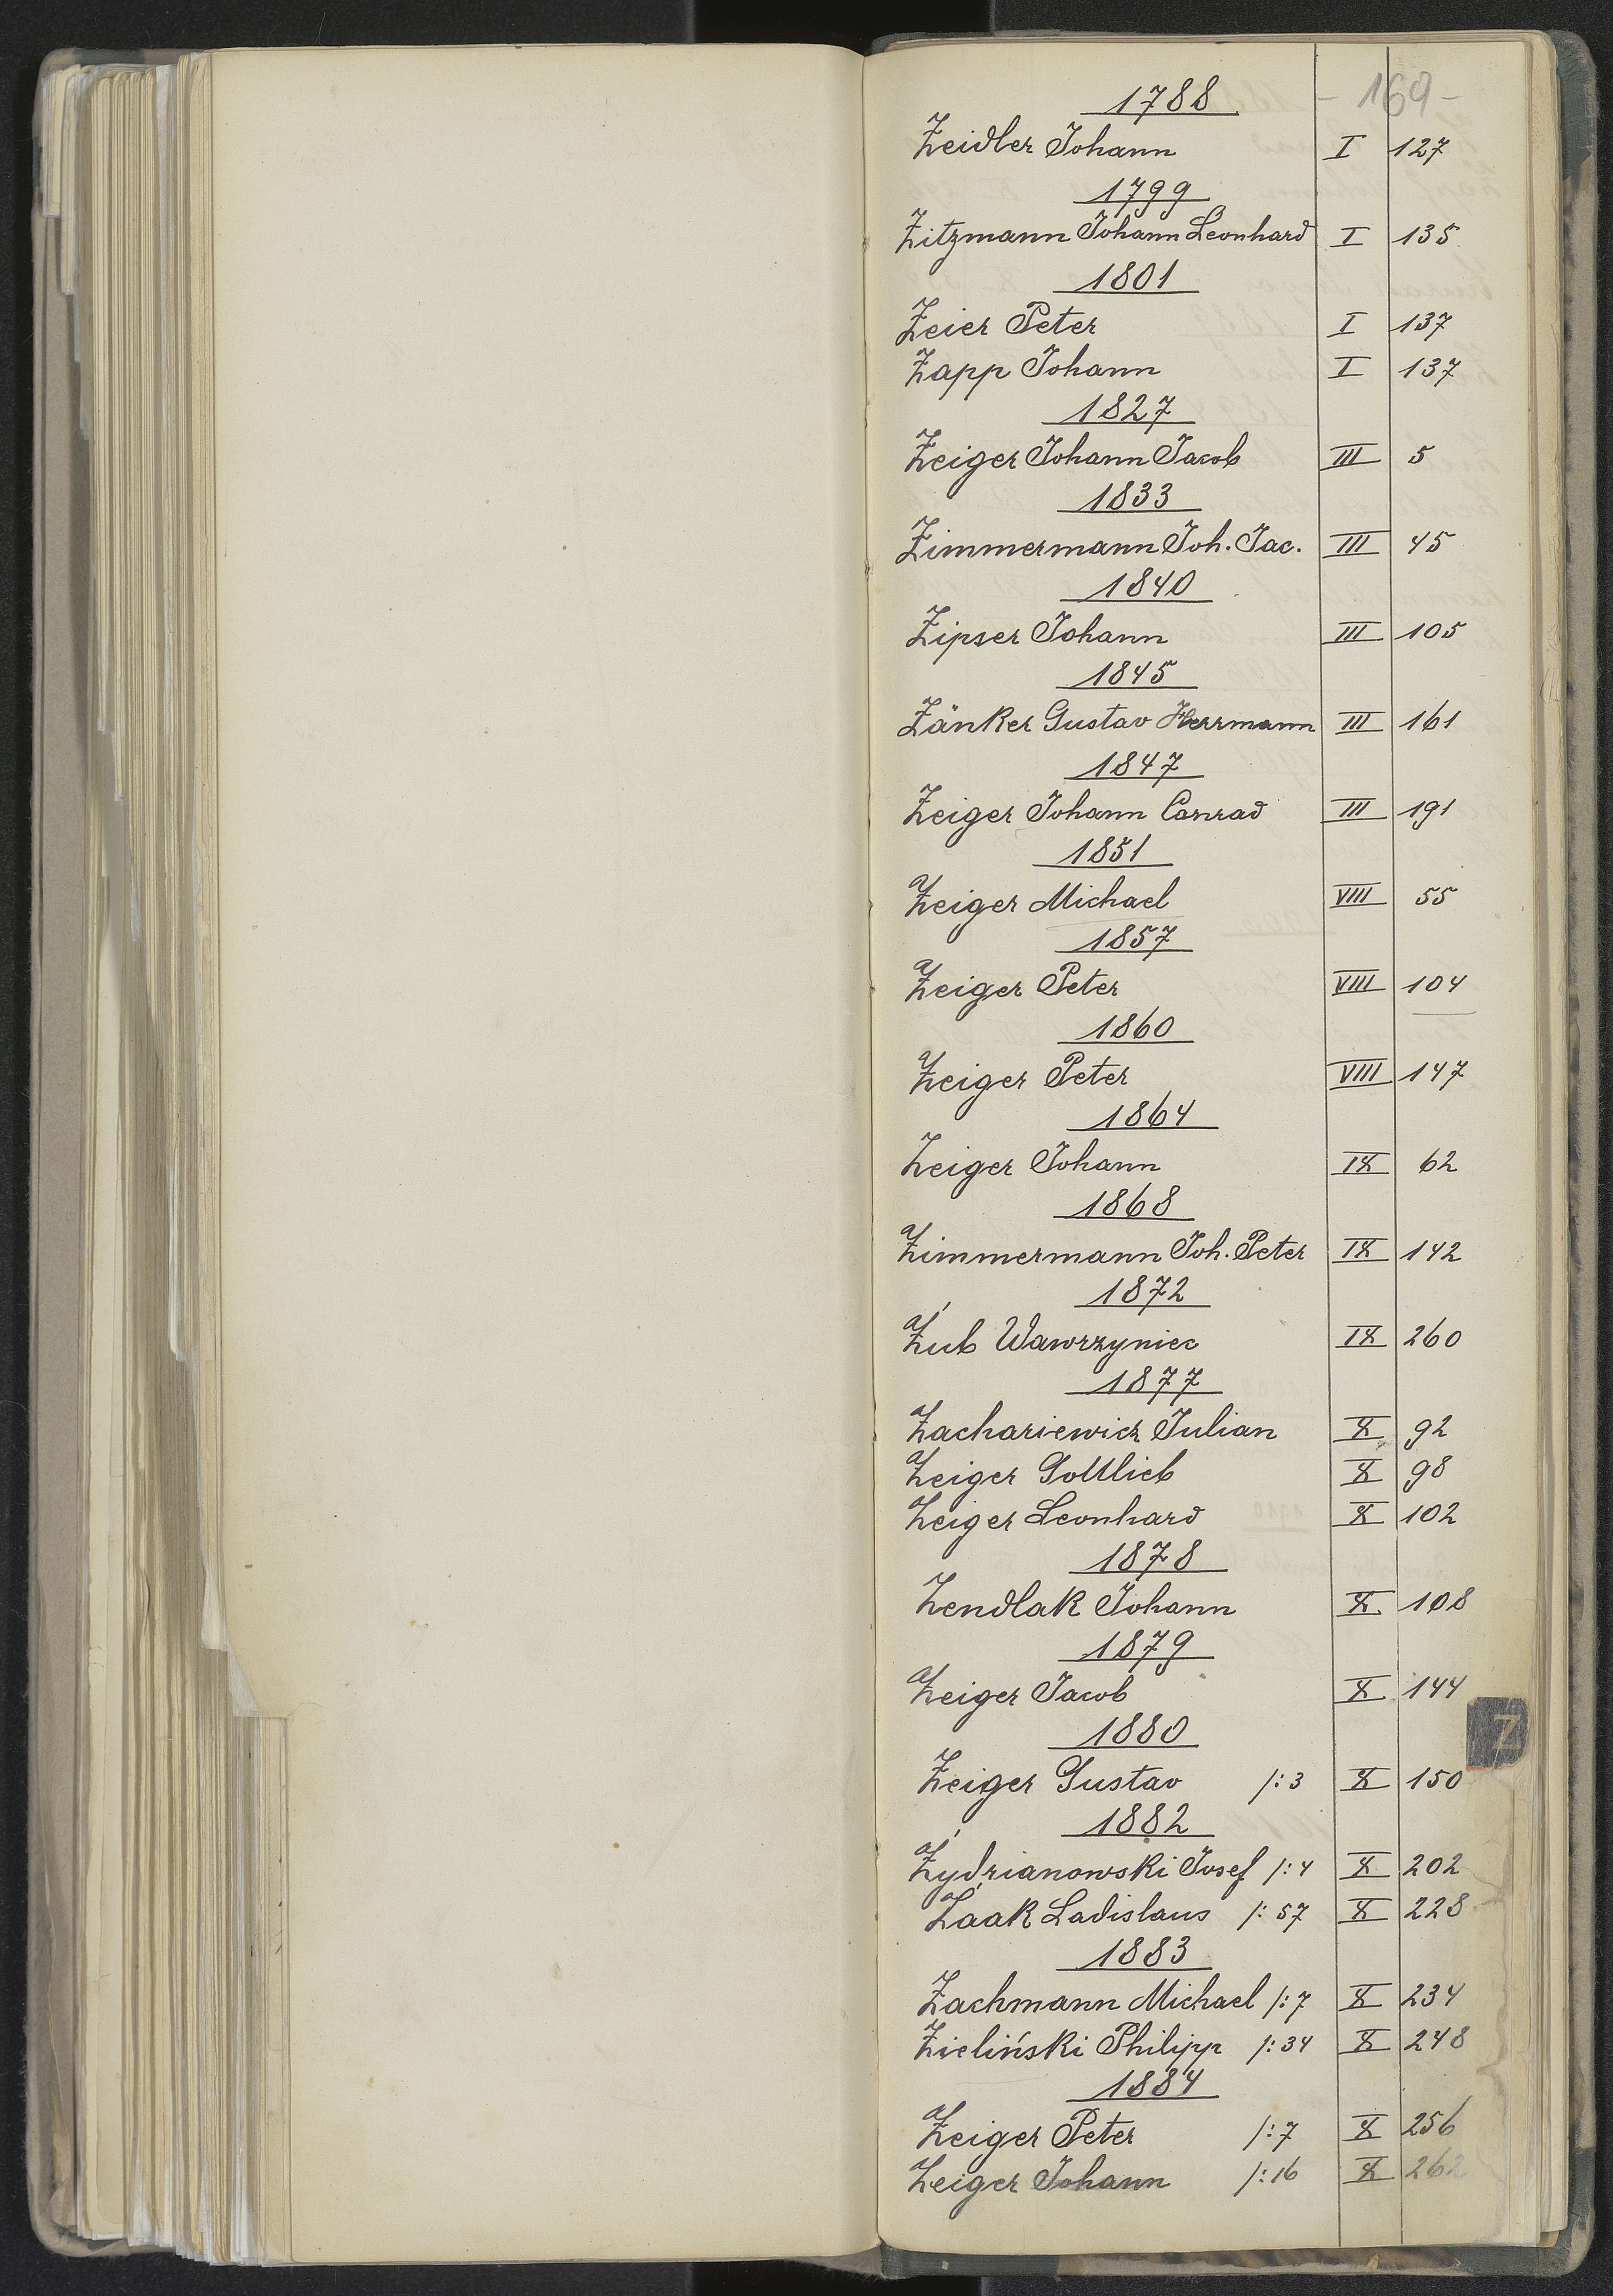 - 169 -
1788
Zeidler Johann I 127
1799
Zitzmann Johann Leonhard I 135
1801
Zeier Peter I 137
Zapp Johann I 137
1827
Zeiger Johann Jacob III 5
1833
Zimmermann Joh. Jac. III 45
1840
Zipser Johann III 105
1845
Zänker Gustav Herrmann III 161
1847
Zeiger Johann Conrad III 191
1851
Zeiger Michael VIII 55
1857
Zeiger Peter VIII 104
1860
Zeiger Peter VIII 147
1864
Zeiger Johann IX 62
1868
Zimmermann Joh. Peter IX 142
1872
Żub Wawrzyniec IX 260
1877
Zachariewicz Julian X 92
Zeiger Gottlieb X 98
Zeiger Leonhard X 102
1878
Zendlak Johann X 108
1879
Zeiger Jacob X 144
1880
Zeiger Gustav /: 3 X 150
1882
Żydrianowski Josef /: 4 X 202
Żaak Ladislaus /: 57 X 228
1883
Zachmann Michael /: 7 X 234
Zieliński Philipp /: 34 X 248
1884
Zeiger Peter /: 7 X 256
Zeiger Johann /: 16 X 262
Z